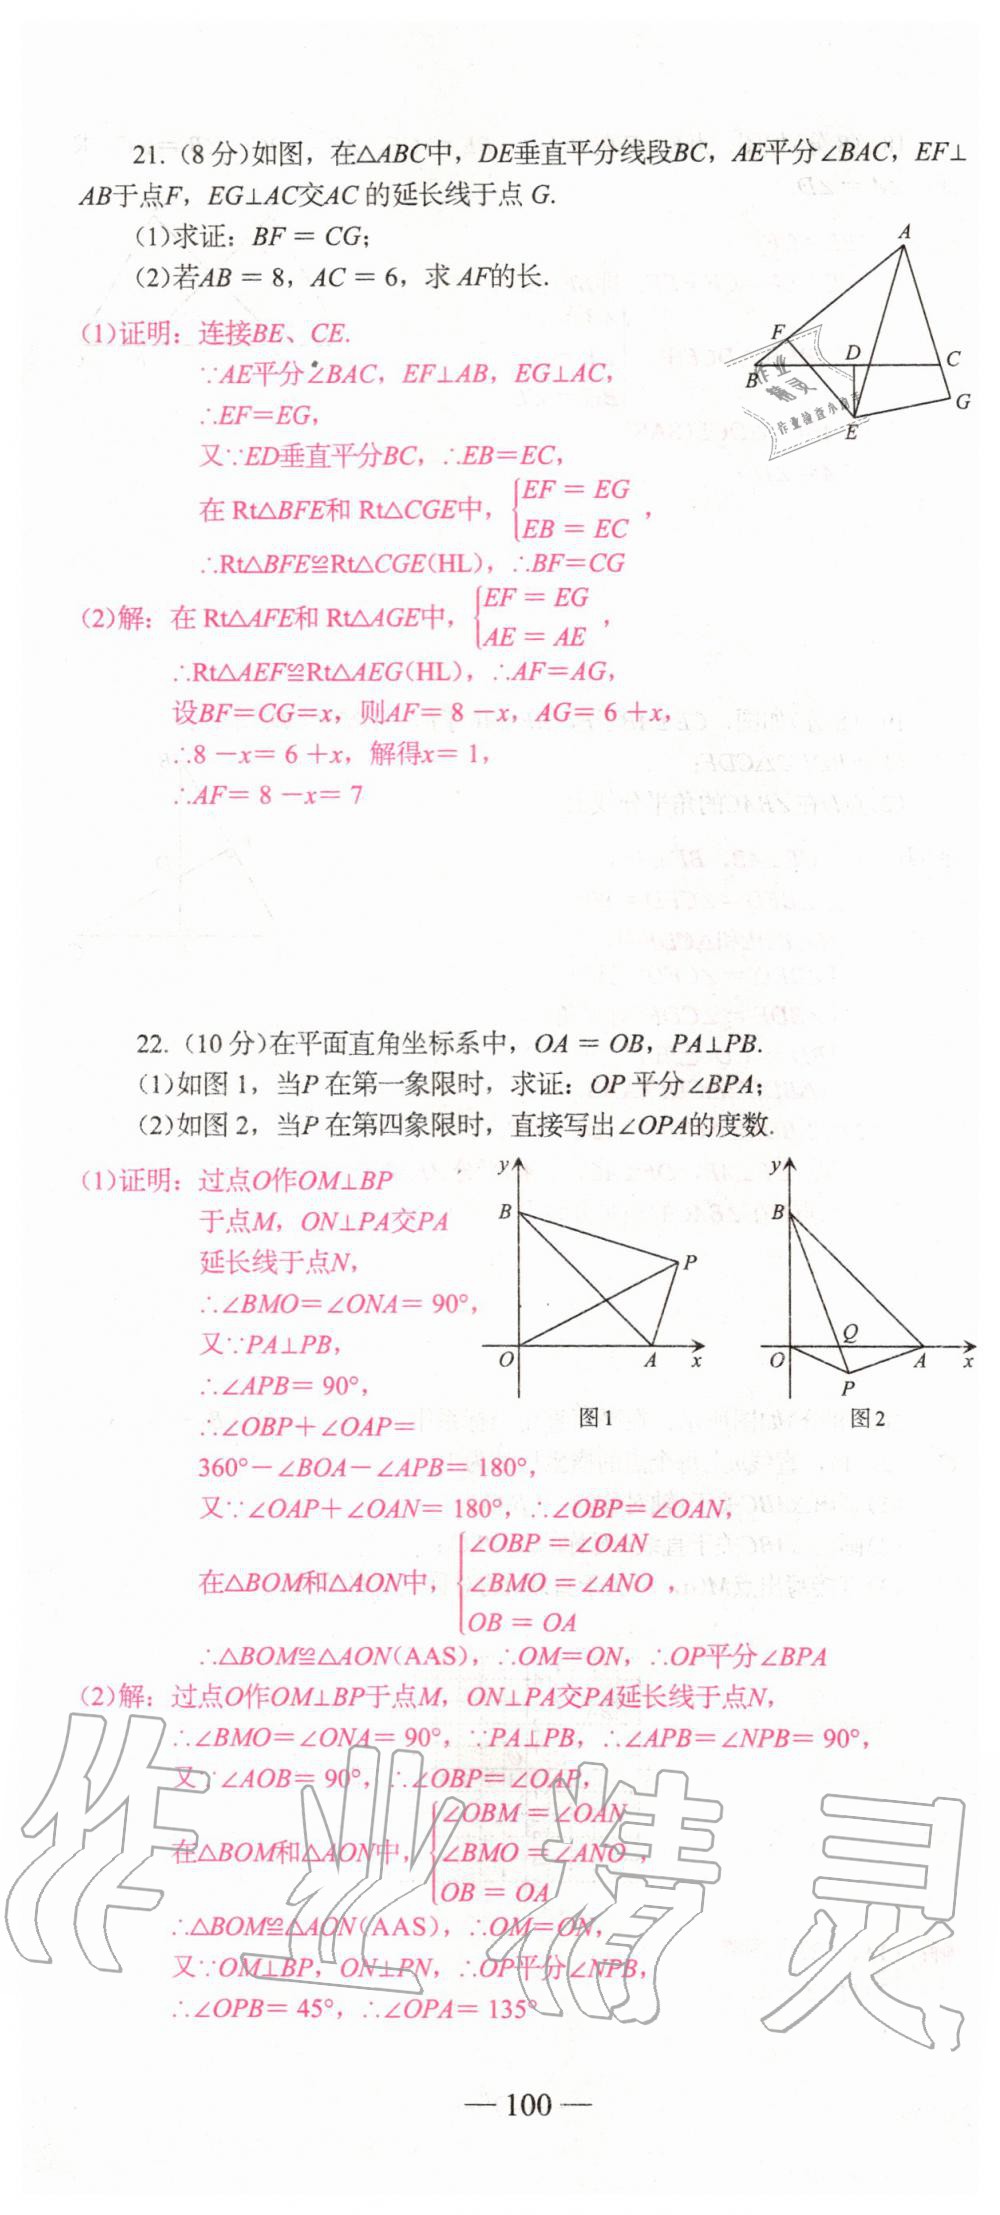 21.(8 分)如图，在△ABC中，DE垂直平分线段BC，AE平分∠BAC，EF⊥
AB于点F，EG⊥AC交AC 的延长线于点 G.
(1)求证：BF = CG;
(2)若AB = 8，AC = 6，求 AF的长.
A
F
D
B
C
G
E
作业
精灵
作业检查小助手
(1)证明：连接BE、CE.
∵AE平分∠BAC，EF⊥AB，EG⊥AC，
∴EF=EG，
又∵ED垂直平分BC，∴EB=EC，
在 Rt△BFE和 Rt△CGE中，{EF = EG
EB = EC，
∴Rt△BFE≌Rt△CGE(HL)，∴BF=CG
(2)解：在 Rt△AFE和 Rt△AGE中，{EF = EG
AE = AE，
∴Rt△AEF≌Rt△AEG(HL)，∴AF=AG，
设BF=CG=x，则AF= 8 －x，AG= 6 +x，
∴8 －x= 6 +x，解得x= 1，
∴AF= 8 －x= 7
22.(10 分)在平面直角坐标系中，OA = OB，PA⊥PB.
(1)如图 1，当P 在第一象限时，求证：OP 平分∠BPA;
(2)如图 2，当P 在第四象限时，直接写出∠OPA的度数.
(1)证明：过点O作OM⊥BP
于点M，ON⊥PA交PA
延长线于点N，
∴∠BMO=∠ONA= 90°，
又∵PA⊥PB，
∴∠APB= 90°，
∴∠OBP+∠OAP=
360°－∠BOA－∠APB= 180°，
y
B
P
O
A
x
图1
y
B
Q
O
A
x
P
图2
又∵∠OAP+∠OAN= 180°，∴∠OBP=∠OAN，
在△BOM和△AON中，{∠OBP =∠OAN
∠BMO =∠ANO，
OB = OA
∴△BOM≌△AON(AAS)，∴OM=ON，∴OP平分∠BPA
(2)解：过点O作OM⊥BP于点M，ON⊥PA交PA延长线于点N，
∴∠BMO=∠ONA= 90°，∵PA⊥PB，∴∠APB=∠NPB= 90°，
又∵∠AOB= 90°，∴∠OBP=∠OAP，
在△BOM和△AON中，{∠OBM =∠OAN
∠BMO =∠ANO，
OB = OA
∴△BOM≌△AON(AAS)，∴OM=ON，
又∵OM⊥BP，ON⊥PN，∴OP平分∠NPB，
∴∠OPB= 45°，∴∠OPA= 135°
作业精灵
— 100 —